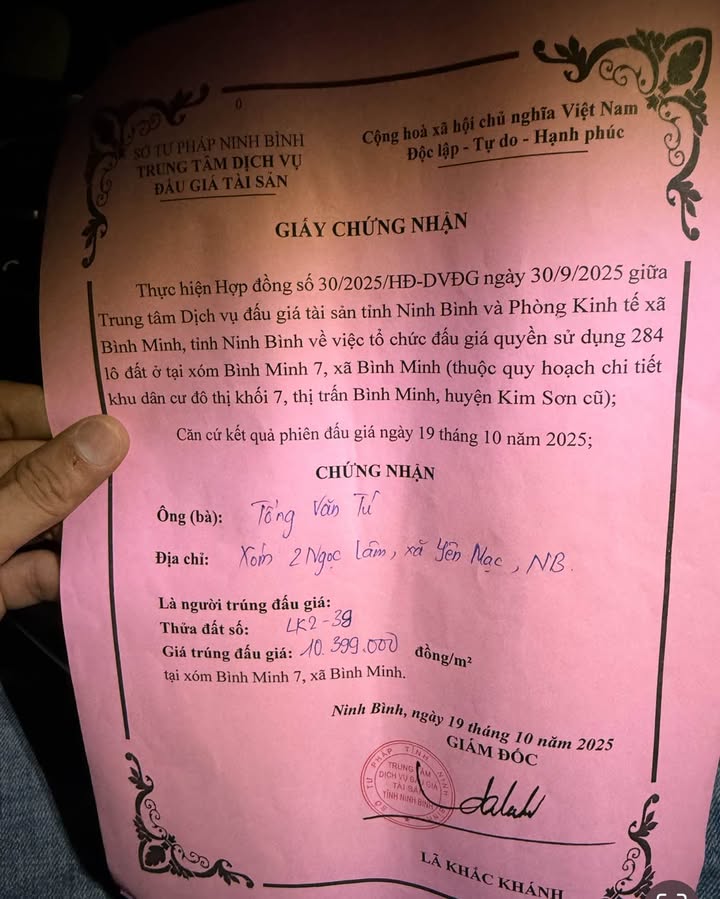 0
SỞ TƯ PHÁP NINH BÌNH
TRUNG TÂM DỊCH VỤ
ĐẤU GIÁ TÀI SẢN
Cộng hoà xã hội chủ nghĩa Việt Nam
Độc lập - Tự do - Hạnh phúc
GIẤY CHỨNG NHẬN
Thực hiện Hợp đồng số 30/2025/HĐ-DVĐG ngày 30/9/2025 giữa
Trung tâm Dịch vụ đấu giá tài sản tỉnh Ninh Bình và Phòng Kinh tế xã
Bình Minh, tỉnh Ninh Bình về việc tổ chức đấu giá quyền sử dụng 284
lô đất ở tại xóm Bình Minh 7, xã Bình Minh (thuộc quy hoạch chi tiết
khu dân cư đô thị khối 7, thị trấn Bình Minh, huyện Kim Sơn cũ);
Căn cứ kết quả phiên đấu giá ngày 19 tháng 10 năm 2025;
CHỨNG NHẬN
Ông (bà): Tống Văn Tứ
Địa chỉ: Xóm 2 Ngọc Lâm, xã Yên Mạc, NB.
Là người trúng đấu giá:
Thửa đất số: LK2-39
Giá trúng đấu giá: 10.399.000 đồng/m²
tại xóm Bình Minh 7, xã Bình Minh.
Ninh Bình, ngày 19 tháng 10 năm 2025
GIÁM ĐỐC
SỞ TƯ PHÁP TỈNH NINH BÌNH
TRUNG TÂM
DỊCH VỤ ĐẤU GIÁ
TÀI SẢN
TỈNH NINH BÌNH
LÃ KHẮC KHÁNH